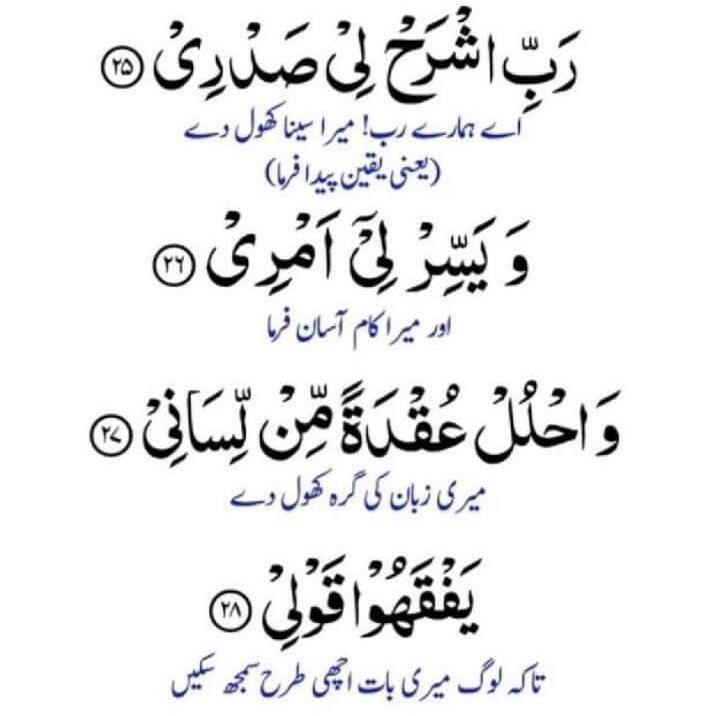 رَبِّ اشْرَحْ لِيْ صَدْرِيْ ۝٢٥
اے ہمارے رب! میرا سینا کھول دے
(یعنی یقین پیدا فرما)
وَ يَسِّرْ لِيْٓ اَمْرِيْ ۝٢٦
اور میرا کام آسان فرما
وَ احْلُلْ عُقْدَةً مِّنْ لِّسَانِيْ ۝٢٧
میری زبان کی گرہ کھول دے
يَفْقَهُوْا قَوْلِيْ ۝٢٨
تاکہ لوگ میری بات اچھی طرح سمجھ سکیں